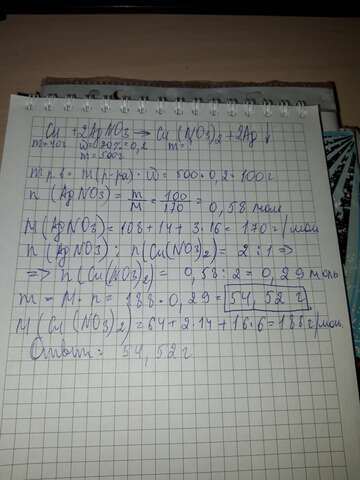 Cu + 2AgNO3 → Cu(NO3)2 + 2Ag↓
m=40г ω=20%=0,2 m=?
m=500г
m р.в. = m(р-ра)·ω = 500·0,2=100г
n(AgNO3) = m/M = 100/170 = 0,58моль
M(AgNO3) = 108+14+3·16 = 170г/моль
n(AgNO3) : n(Cu(NO3)2) = 2:1 =>
=> n(Cu(NO3)2) = 0,58:2=0,29моль
m = M·n = 188·0,29= 54,52г
M(Cu(NO3)2)=64+2·14+16·6=188г/моль
Ответ: 54,52г